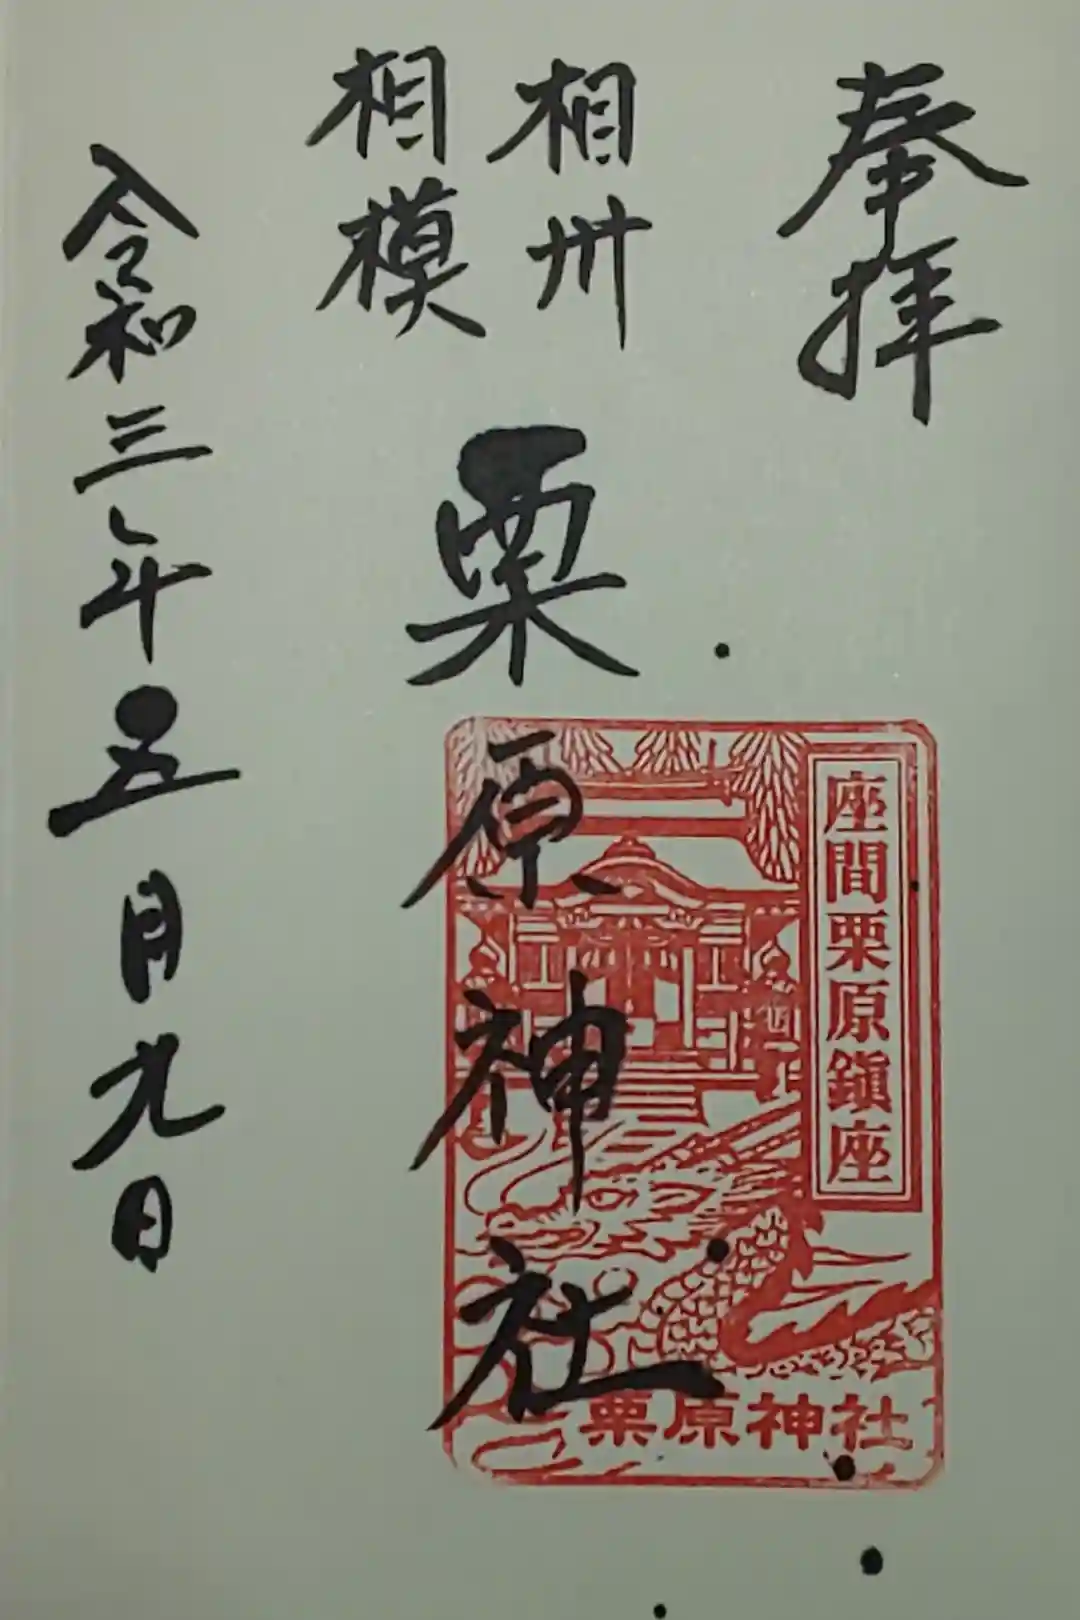 奉拝
相州
相模
栗原神社
令和三年五月九日
座間栗原鎮座
栗原神社